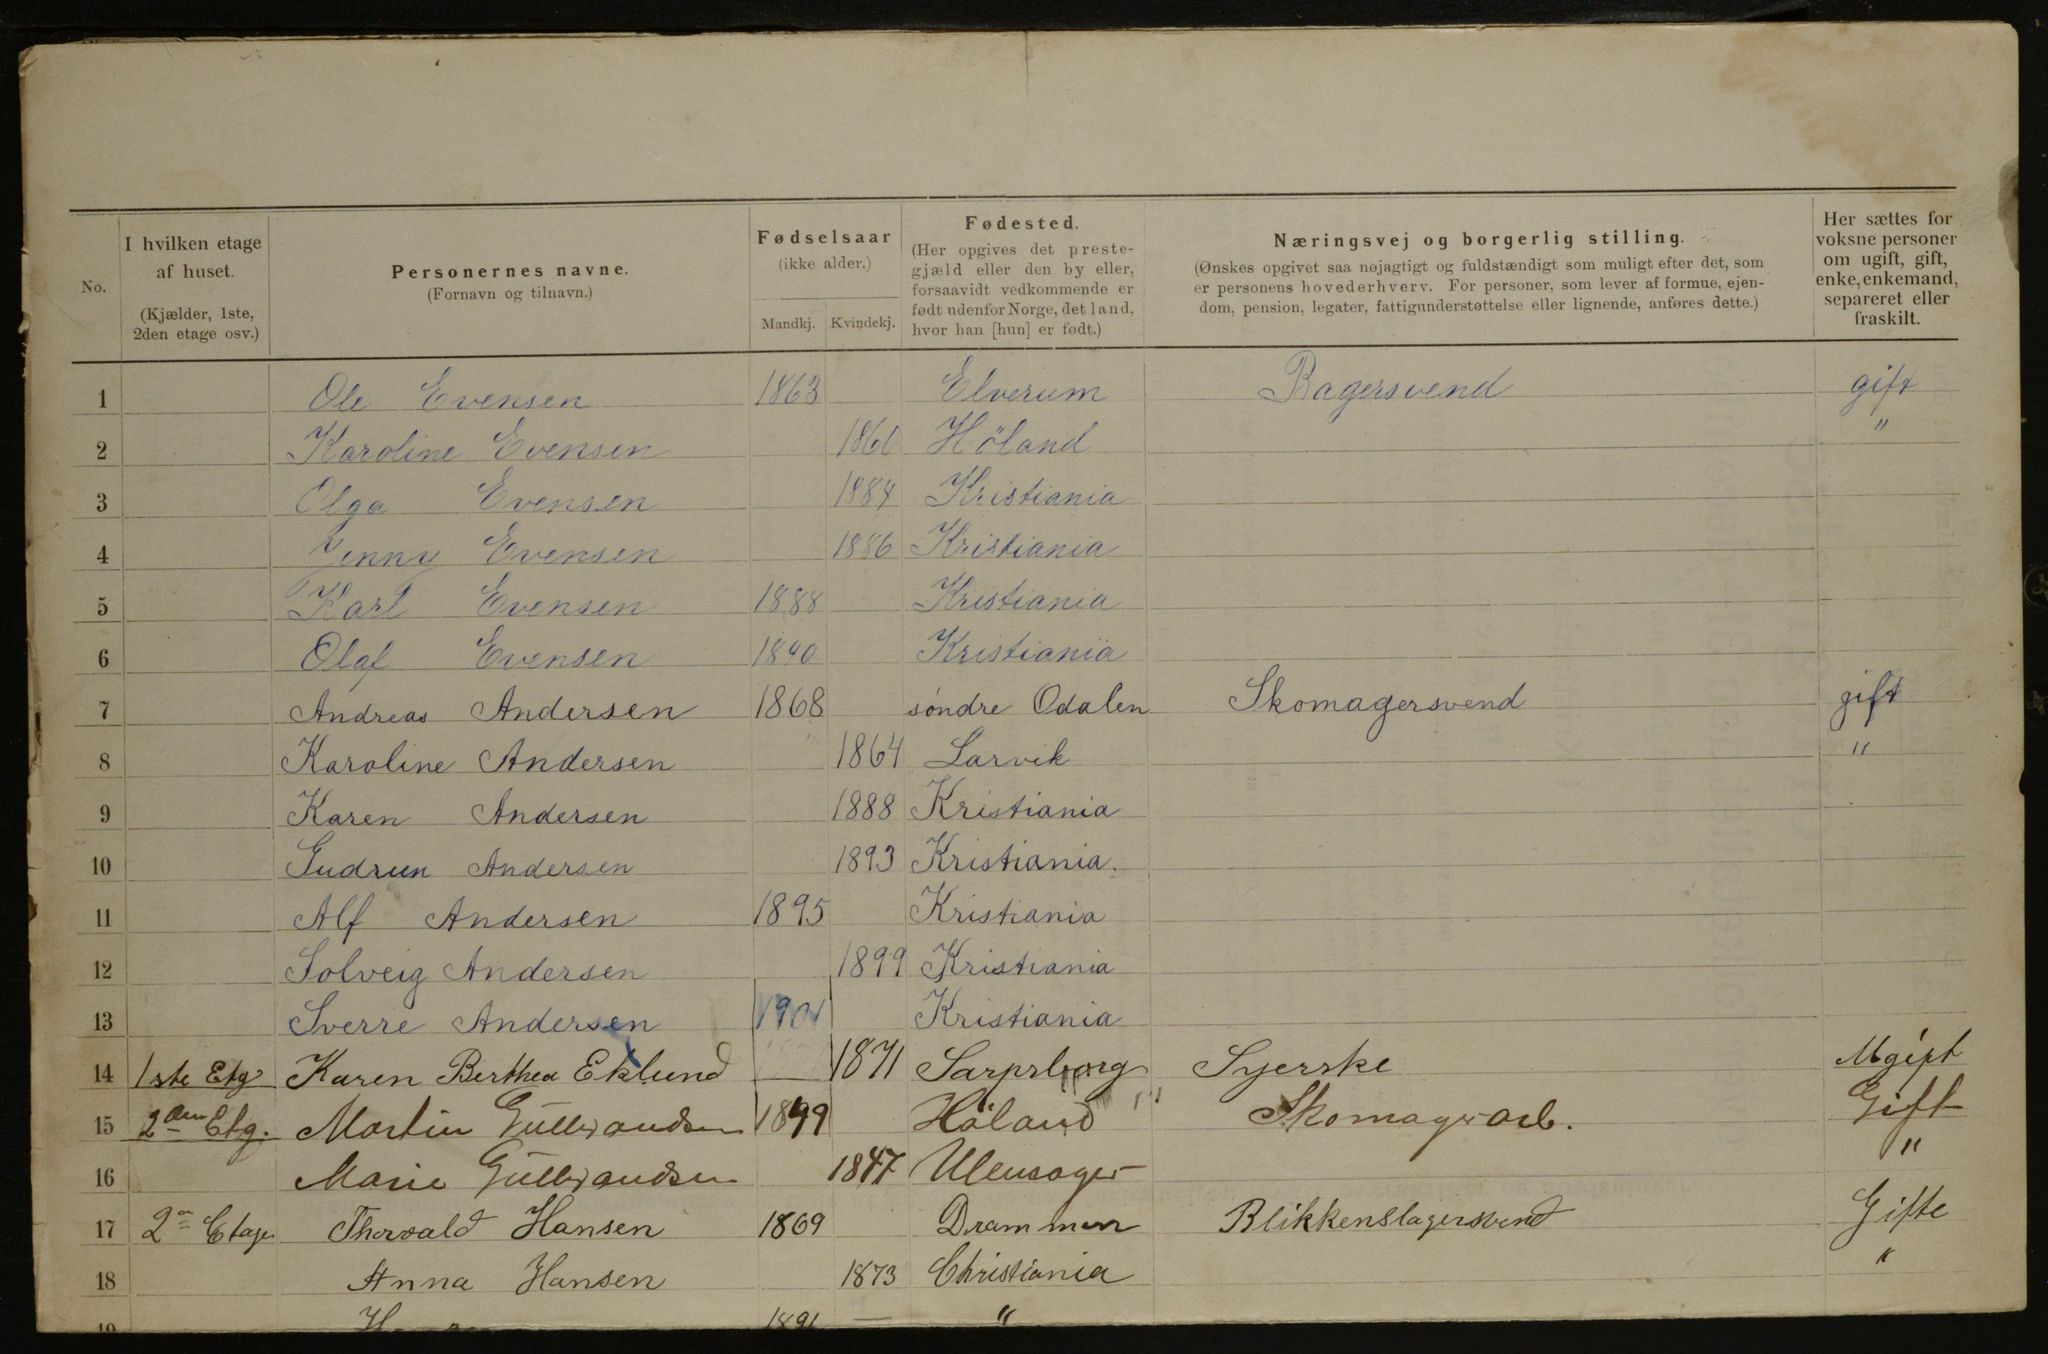 No.
I hvilken etage af huset.
(Kjælder, 1ste, 2den etage osv.)
Personernes navne.
(Fornavn og tilnavn.)
Fødselsaar
(ikke alder.)
Mandkj. Kvindekj.
Fødested.
(Her opgives det prestegjæld eller den by eller, forsaavidt vedkommende er født udenfor Norge, det land, hvor han [hun] er født.)
Næringsvej og borgerlig stilling.
(Ønskes opgivet saa nøjagtigt og fuldstændigt som muligt efter det, som er personens hovederhverv. For personer, som lever af formue, ejendom, pension, legater, fattigunderstøttelse eller lignende, anføres dette.)
Her sættes for voksne personer om ugift, gift, enke, enkemand, separeret eller fraskilt.
1 Ole Evensen 1863 Elverum Bagersvend gift
2 Karoline Evensen Höland "
3 Olga Evensen 1884 Kristiania
4 Jenny Evensen 1886 Kristiania
5 Karl Evensen 1888 Kristiania
6 Olaf Evensen 1890 Kristiania
7 Andreas Andersen 1868 söndre Odalen Skomagersvend gift
8 Karoline Andersen 1864 Larvik "
9 Karen Andersen 1888 Kristiania
10 Gudrun Andersen 1893 Kristiania.
11 Alf Andersen 1895 Kristiania
12 Solveig Andersen 1899 Kristiania
13 Sverre Andersen 1901 Kristiania
14 1ste Etg Karen Berthea Eklund 1871 Sarpsborg Syerske Ugift
15 2den Etg. Martin Gulbrandsen Höland Skomagerarb. Gift
16 Marie Gulbrandsen 1847 Ulensager "
17 2en Etage Thorvald Hansen 1869 Drammen Blikkenslagersvend Gifte
18 Anna Hansen 1873 Christiania "
19 1891 — "